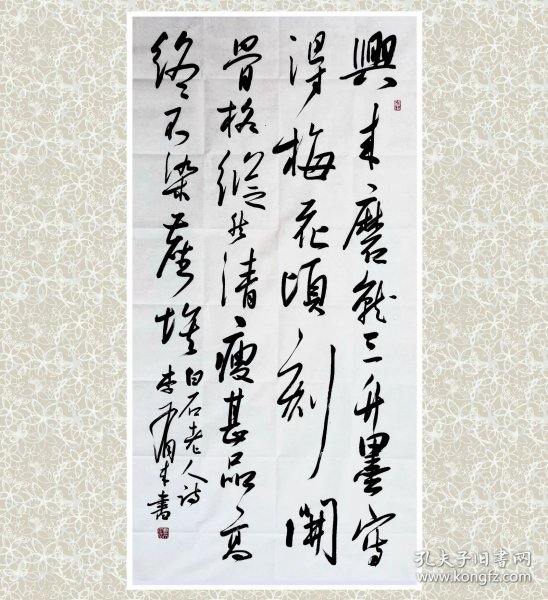 興来磨就三升墨寫
得梅花頃刻開
骨格縱然清瘦甚品高
終不染塵埃
白石老人詩
李
来書
孔夫子旧书网
www.kongfz.com